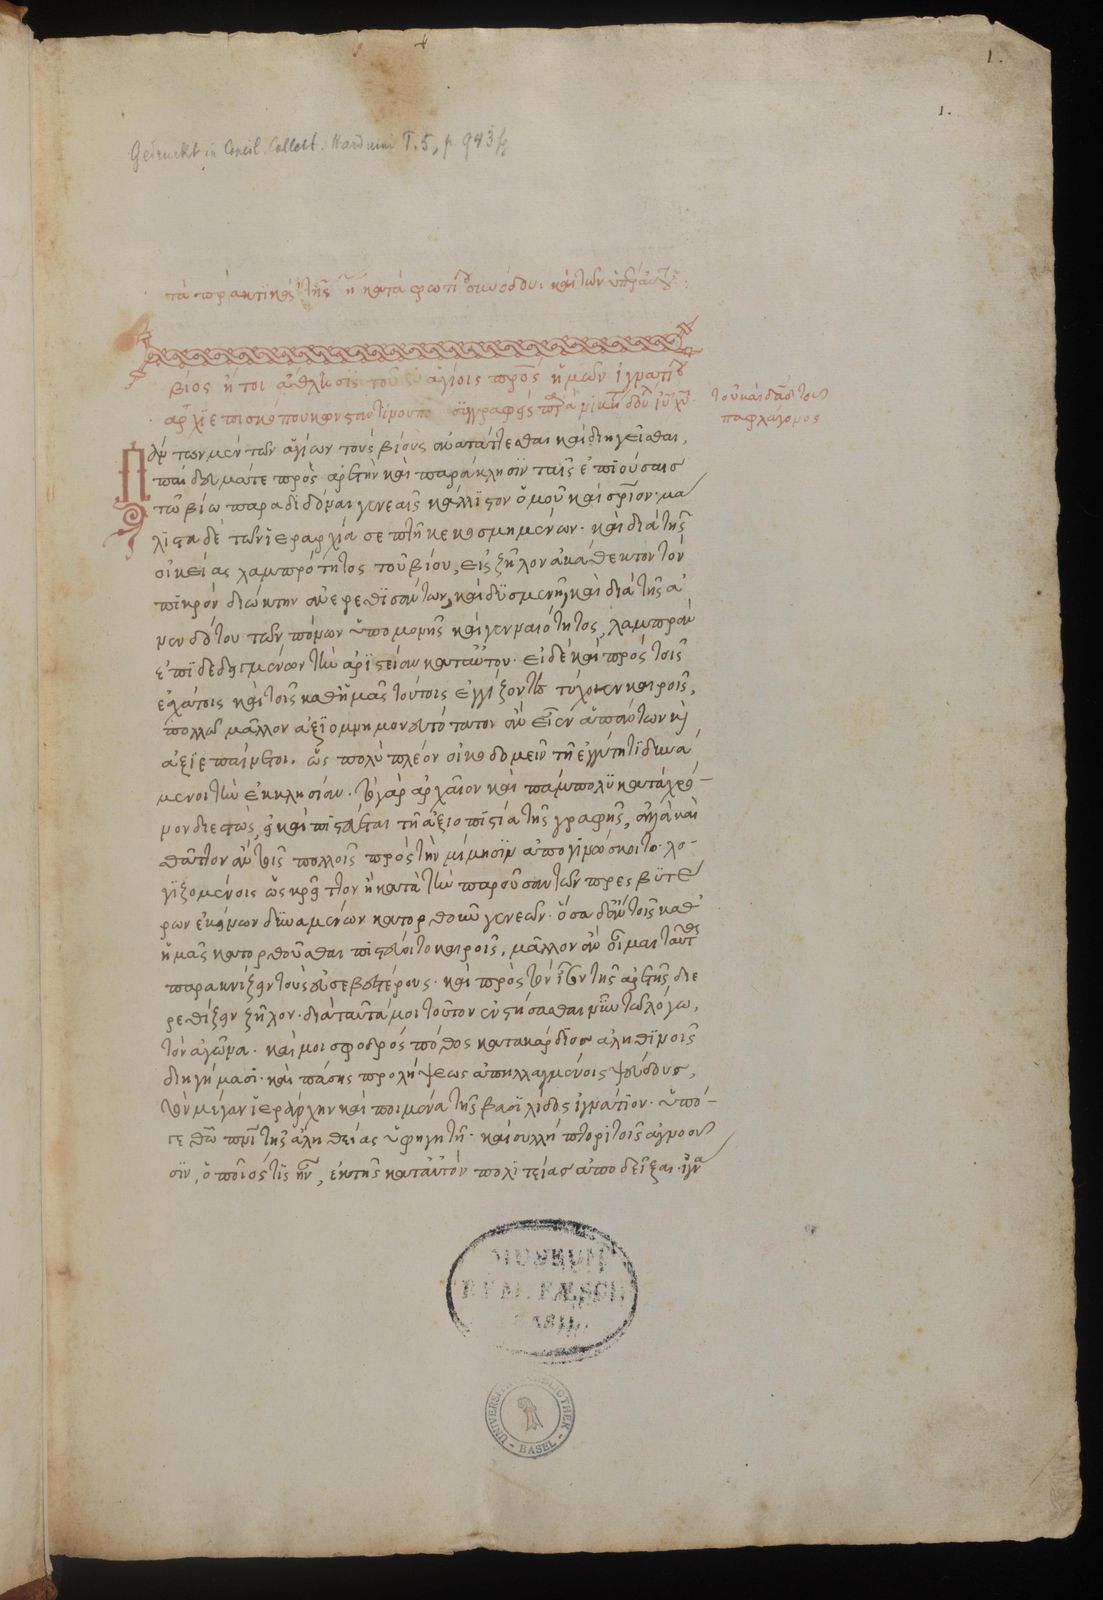 1.
1.
Gedruckt in Concil. Collect. Harduini T. 5, p. 943 fg
τὰ πρακτικὰ τῆς η κατὰ φωτίου συνόδου· καὶ τῶν
βίος ἤτοι ἄθλησις τοῦ ἐν ἁγίοις πρς ἡμῶν ἰγνατίου
ἀρχιεπισκόπου κωνσταντινουπο συγγραφεὶς παρὰ νικήτα δούλου ιυ χυ
τοῦ καὶ δαδ τοῦ
παφλαγόνος
Πάντων μὲν τῶν ἁγίων τοὺς βίους ἀνατάττεσθαι καὶ διηγεῖσθαι,
παίδευμά τε πρὸς ἀρετὴν καὶ παράκλησϊν ταῖς ἐπϊούσαις
τῶ βίω παραδϊδόναι γενεαῖς κάλλϊστον ὁμοῦ καὶ σριον· μά
λϊστα δὲ τῶν ἱεραρχία σεπτῆ κεκοσμημένων· καὶ διὰ τῆς
οἰκείας λαμπρότητος τοῦ βίου, εἰς ζῆλον ἀκάθεκτον τὸν
πϊκρὸν διώκτην ἀνερεθϊσάντων, καὶ δϋσμενῆ καὶ διὰ τῆς ἀ
νενδότου τῶν πόνων ὑπομονῆς καὶ γενναιότητος, λαμπρὰν
ἐπϊδεδειγμένων τὴν ἀρϊστείαν κατ' αὐτοῦ. εἰ δὲ καὶ πρὸς τοῖς
ἐσχάτοις καὶ τοῖς καθ' ἡμᾶς τούτοις ἐγγίζοντες τύχοιεν καιροῖς,
πολλῶ μᾶλλον ἀξϊομνημονευτότατοι ἂν εἶεν ἁπάντων καὶ
ἀξιεπαίνετοι. ὡς πολὺ πλέον οἰκοδομεῖν τῆ ἐγγύτητϊ δυνά
μενοι τὴν ἐκκλησίαν. τὸ γὰρ ἀρχαῖον καὶ πάμπολϋ κατὰ χρό
νον διεστὼς, εἰ καὶ πϊστεύεται τῆ ἀξιοπϊστία τῆς γραφῆς, ἀλλὰ καὶ
θᾶττον ἂν τοῖς πολλοῖς πρὸς τὴν μίμησϊν ἀπογϊνώσκοιτο· λο
γϊζομένοις ὡς κρεῖττον ἢ κατὰ τὴν παροῦσαν τῶν πρεσβϋτέ
ρων ἐκείνων δϋναμένων κατορθοῦν γενεῶν. ὅσα δ' ἂν τοῖς καθ'
ἡμᾶς κατορθοῦσθαι πϊστεύοιτο καιροῖς, μᾶλλον ἂν οἶμαι ταῦτα
παρακνίζειν τοὺς εὐσεβεστέρους· καὶ πρὸς τὸν ἴσον τῆς ἀρετῆς διε
ρεθίζειν ζῆλον. διὰ ταῦτά μοι τοῦτον ἐνστήσασθαι νῦν τῶ λόγω,
τὸν ἀγῶνα. καί μοι σφοδρὸς πόθος κατακάρδϊος ἀληθϊνοῖς
διηγήμασϊ· καὶ πάσης προλήψεως ἀπηλλαγμένοις ψευδοῦς,
τὸν μέγαν ἱεράρχην καὶ ποιμένα τῆς βασϊλίδος ἰγνάτϊον. ὑπὸ
τε θῶ πρὶ τῆς ἀληθείας ὑφηγητῆ· καὶ συλλήπτορϊ τοῖς ἀγνοοῦ
σϊν, ὁποῖός τϊς ἦν, ἐκ τῆς κατ' αὐτὸν πολϊτείας ἀποδεῖξαι. ἰγνά
MUSEUM
REM. FÆSCH.
BASIL
UNIVERSITÄTS BIBLIOTHEK
BASEL